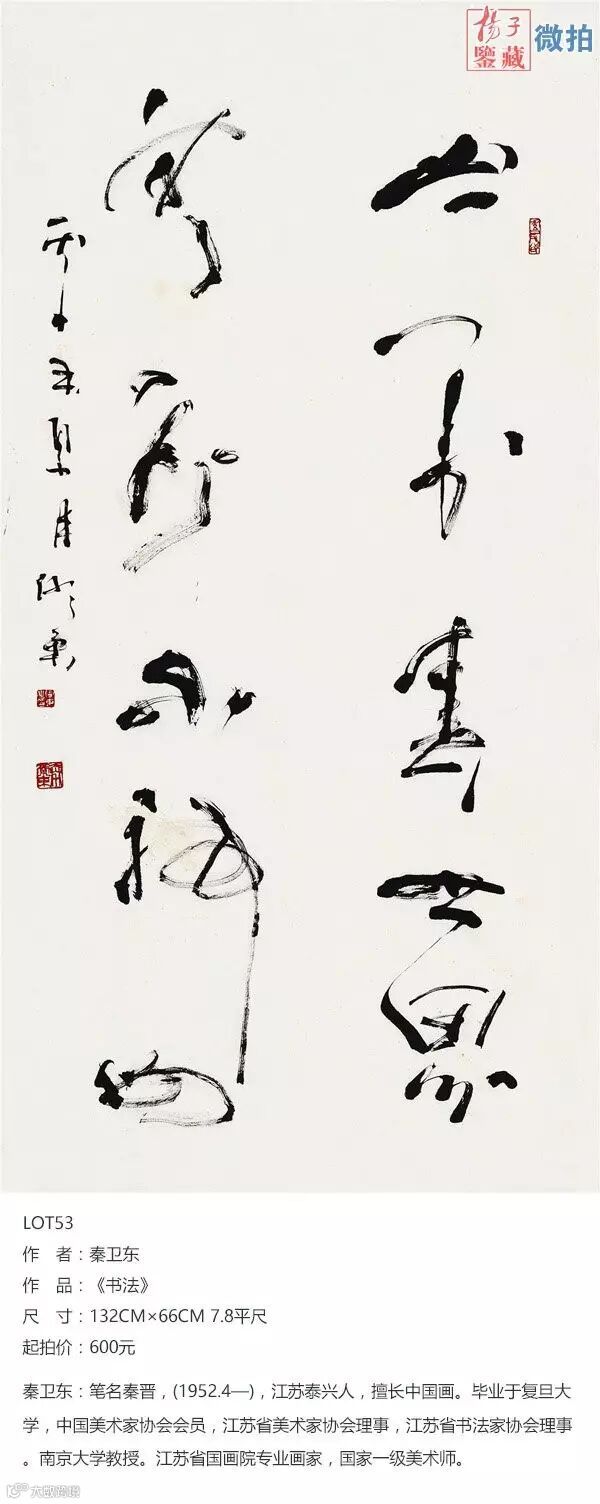 楊子
鑒藏
微拍
世界
物
未夏月衛東
LOT53
作 者：秦卫东
作 品：《书法》
尺 寸：132CM×66CM 7.8平尺
起拍价：600元
秦卫东：笔名秦晋，(1952.4—)，江苏泰兴人，擅长中国画。毕业于复旦大
学，中国美术家协会会员，江苏省美术家协会理事，江苏省书法家协会理事
。南京大学教授。江苏省国画院专业画家，国家一级美术师。
大数跨境